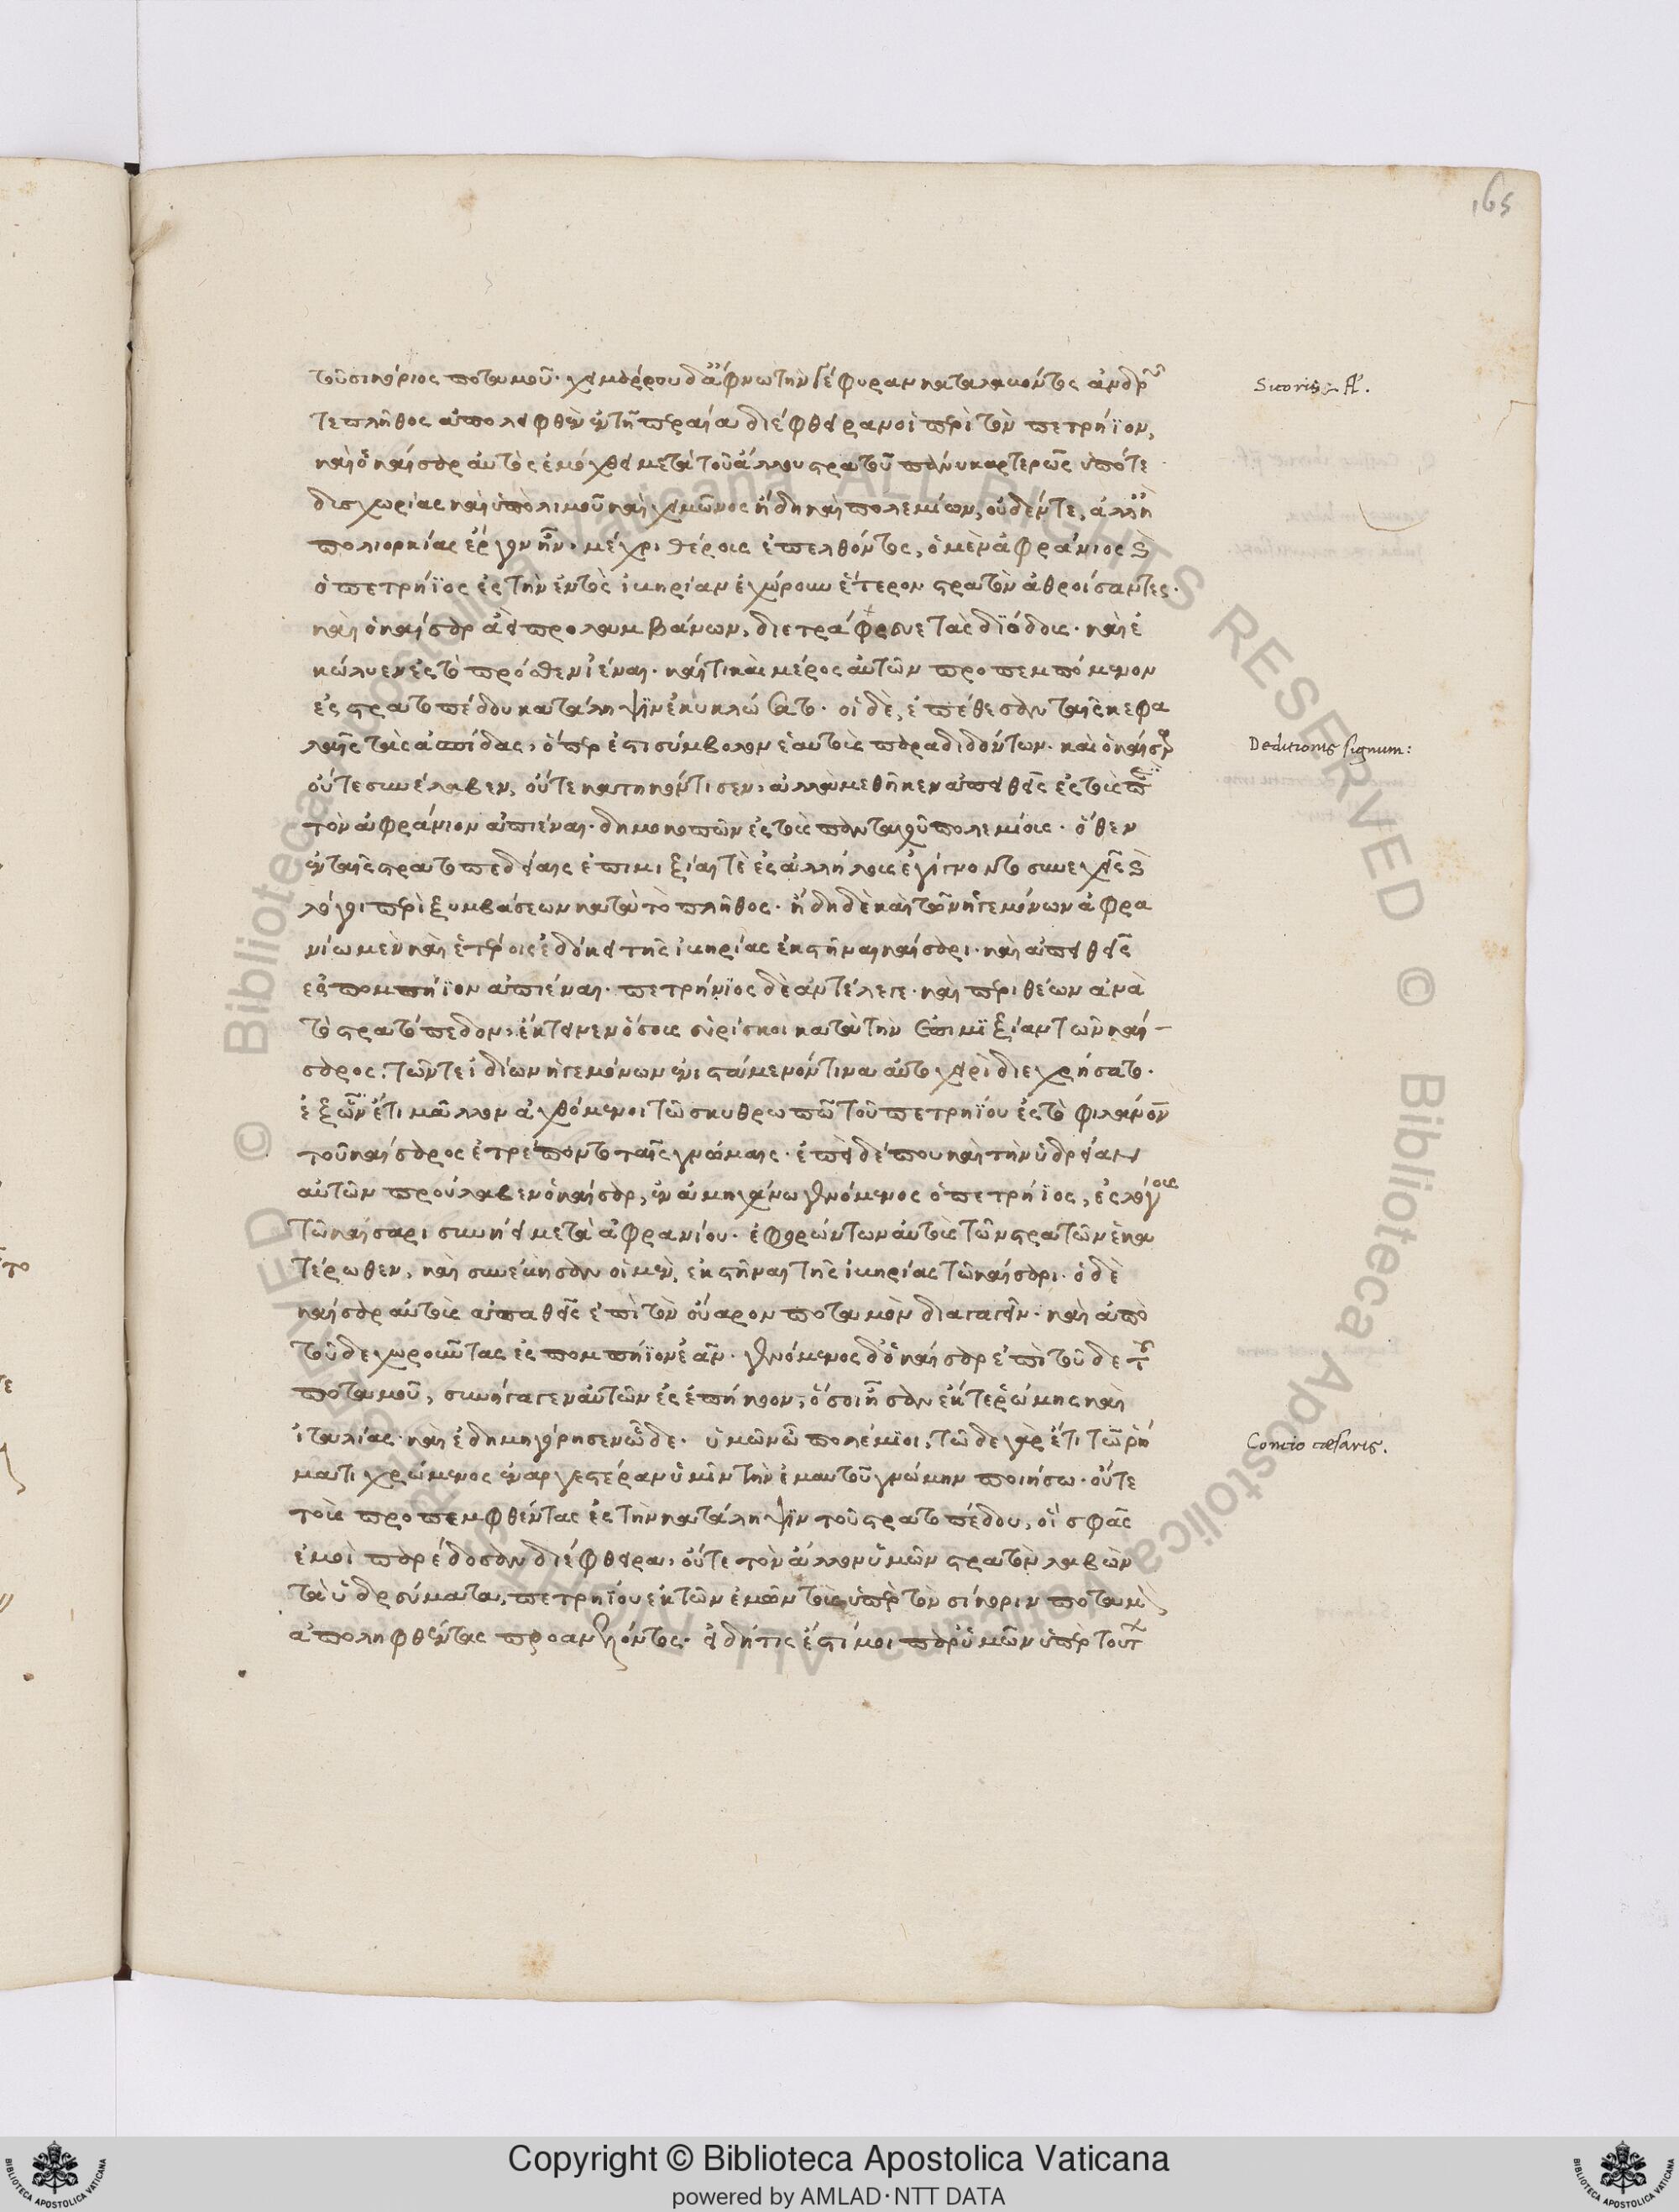 165
τοῦ σικόριος ποταμοῦ. χειμάρρου δ' ἄφνω τὴν γέφυραν καταλαβόντος ἀνδρῶν
τε πλῆθος ἀπολειφθὲν ἐν τῇ περαίᾳ διέφθειραν οἱ περὶ τὸν πετρήϊον,
καὶ ὁ καῖσαρ αὐτὸς ἐμόχθει μετὰ τοῦ ἄλλου στρατοῦ πάνυ καρτερῶς ὑπό τε
δισχωρίας καὶ ὑπὸ λιμοῦ καὶ χειμῶνος ἤδη καὶ πολεμίων, οὐδέν τε, ἀλλ' ἢ
πολιορκίας ἔργον ἦν. μέχρι θέρους ἐπελθόντος, ὁ μὲν ἀφράνιος καὶ
ὁ πετρήϊος ἐς τὴν ἐντὸς ἰβηρίαν ἐχώρουν ἕτερον στρατὸν ἀθροίσαντες.
καὶ ὁ καῖσαρ ἀεὶ προλαμβάνων, διετάφρευε τὰς διόδους. καὶ ἐ
κώλυεν ἐς τὸ πρόσθεν ἰέναι. καί τι καὶ μέρος αὐτῶν προπεμπόμενον
ἐς στρατοπέδου κατάληψιν ἐκυκλώσατο. οἱ δὲ, ἐπέθεσαν ταῖς κεφα
λαῖς τὰς ἀσπίδας, ὅπερ ἐστὶ σύμβολον ἑαυτοὺς παραδιδόντων. καὶ ὁ καῖσαρ
οὔτε συνέλαβεν, οὔτε κατηκόντισεν, ἀλλὰ μεθῆκεν ἀπαθεῖς ἐς τοὺς περὶ
τὸν ἀφράνιον ἀπιέναι. δημοκοπῶν ἐς τοὺς πανταχοῦ πολεμίους. ὅθεν
ἐν ταῖς στρατοπεδείαις ἐπιμιξίαι τὲ ἐς ἀλλήλους ἐγίγνοντο συνεχεῖς καὶ
λόγοι περὶ ξυμβάσεων κατὰ τὸ πλῆθος. ἤδη δὲ καὶ τῶν ἡγεμόνων ἀφρα
νίω μὲν καὶ ἑτέροις ἐδόκει τῆς ἰβηρίας ἐκστῆναι καίσαρι. καὶ ἀπαθεῖς
ἐς πομπήϊον ἀπιέναι. πετρήϊος δὲ ἀντέλεγε. καὶ περιθέων ἀνὰ
τὸ στρατόπεδον, ἔκτεινεν ὅσους εὑρίσκοι κατὰ τὴν ἐπιμιξίαν τῶν καί-
σαρος. τῶν τε ἰδίων ἡγεμόνων ἐνιστάμενόν τινα αὐτοχειρὶ διεχρήσατο.
ἐξ ὧν ἔτι μᾶλλον ἀχθόμενοι τῶ σκυθρωπῶ τοῦ πετρηΐου ἐς τὸ φιλάνον
τοῦ καίσαρος ἐτρέποντο ταῖς γνώμαις. ἐπεὶ δέ που καὶ τὴν ὑδρείαν
αὐτῶν προύλαβεν ὁ καῖσαρ, ἐν ἀμηχάνω γενόμενος ὁ πετρήϊος, ἐς λόγους
τῶ καίσαρι συνήει μετὰ ἀφρανίου. ἐφορώντων αὐτοὺς τῶν στρατῶν ἑκα
τέρωθεν, καὶ συνέβησαν οἱ μὲν, ἐκστῆναι τῆς ἰβηρίας τῶ καίσαρι. ὁ δὲ
καῖσαρ αὐτοὺς ἀπαθεῖς ἐπὶ τὸν οὔαρον ποταμὸν διαγαγεῖν. καὶ ἀπὸ
τοῦδε χωροῦντας ἐς πομπήϊον ἐᾶν. γενόμενος δ' ὁ καῖσαρ ἐπὶ τοῦδε τοῦ
ποταμοῦ, συνήγαγεν αὐτῶν ἐς ἐπήκοον, ὅσοι ἦσαν ἔκ τε ῥώμης καὶ
ἰταλίας. καὶ ἐδημηγόρησεν ὧδε. ὑμῶν ὦ πολέμιοι, τῶδε γὰρ ἔτι τῶ ῥή
ματι χρώμενος ἐναργεστέραν ὑμῖν τὴν ἐμαυτοῦ γνώμην ποιήσω. οὔτε
τοὺς προπεμφθέντας ἐς τὴν κατάληψιν τοῦ στρατοπέδου, οἳ σφᾶς
ἐμοὶ παρέδοσαν διέφθειρα, οὔτε τὸν ἄλλον ὑμῶν στρατὸν λαβὼν
τὰ ὑδρεύματα, πετρηΐου ἐκ τῶν ἐμῶν τοὺς ὑπὲρ τὸν σίκοριν ποταμὸν
ἀποληφθέντας προανελόντος. εἰ δή τις ἔστί μοι παρ' ὑμῶν ὑπὲρ τούτων
Sicoris fl.
Deditionis signum:
Concio cæsaris.
Copyright © Biblioteca Apostolica Vaticana
powered by AMLAD·NTT DATA